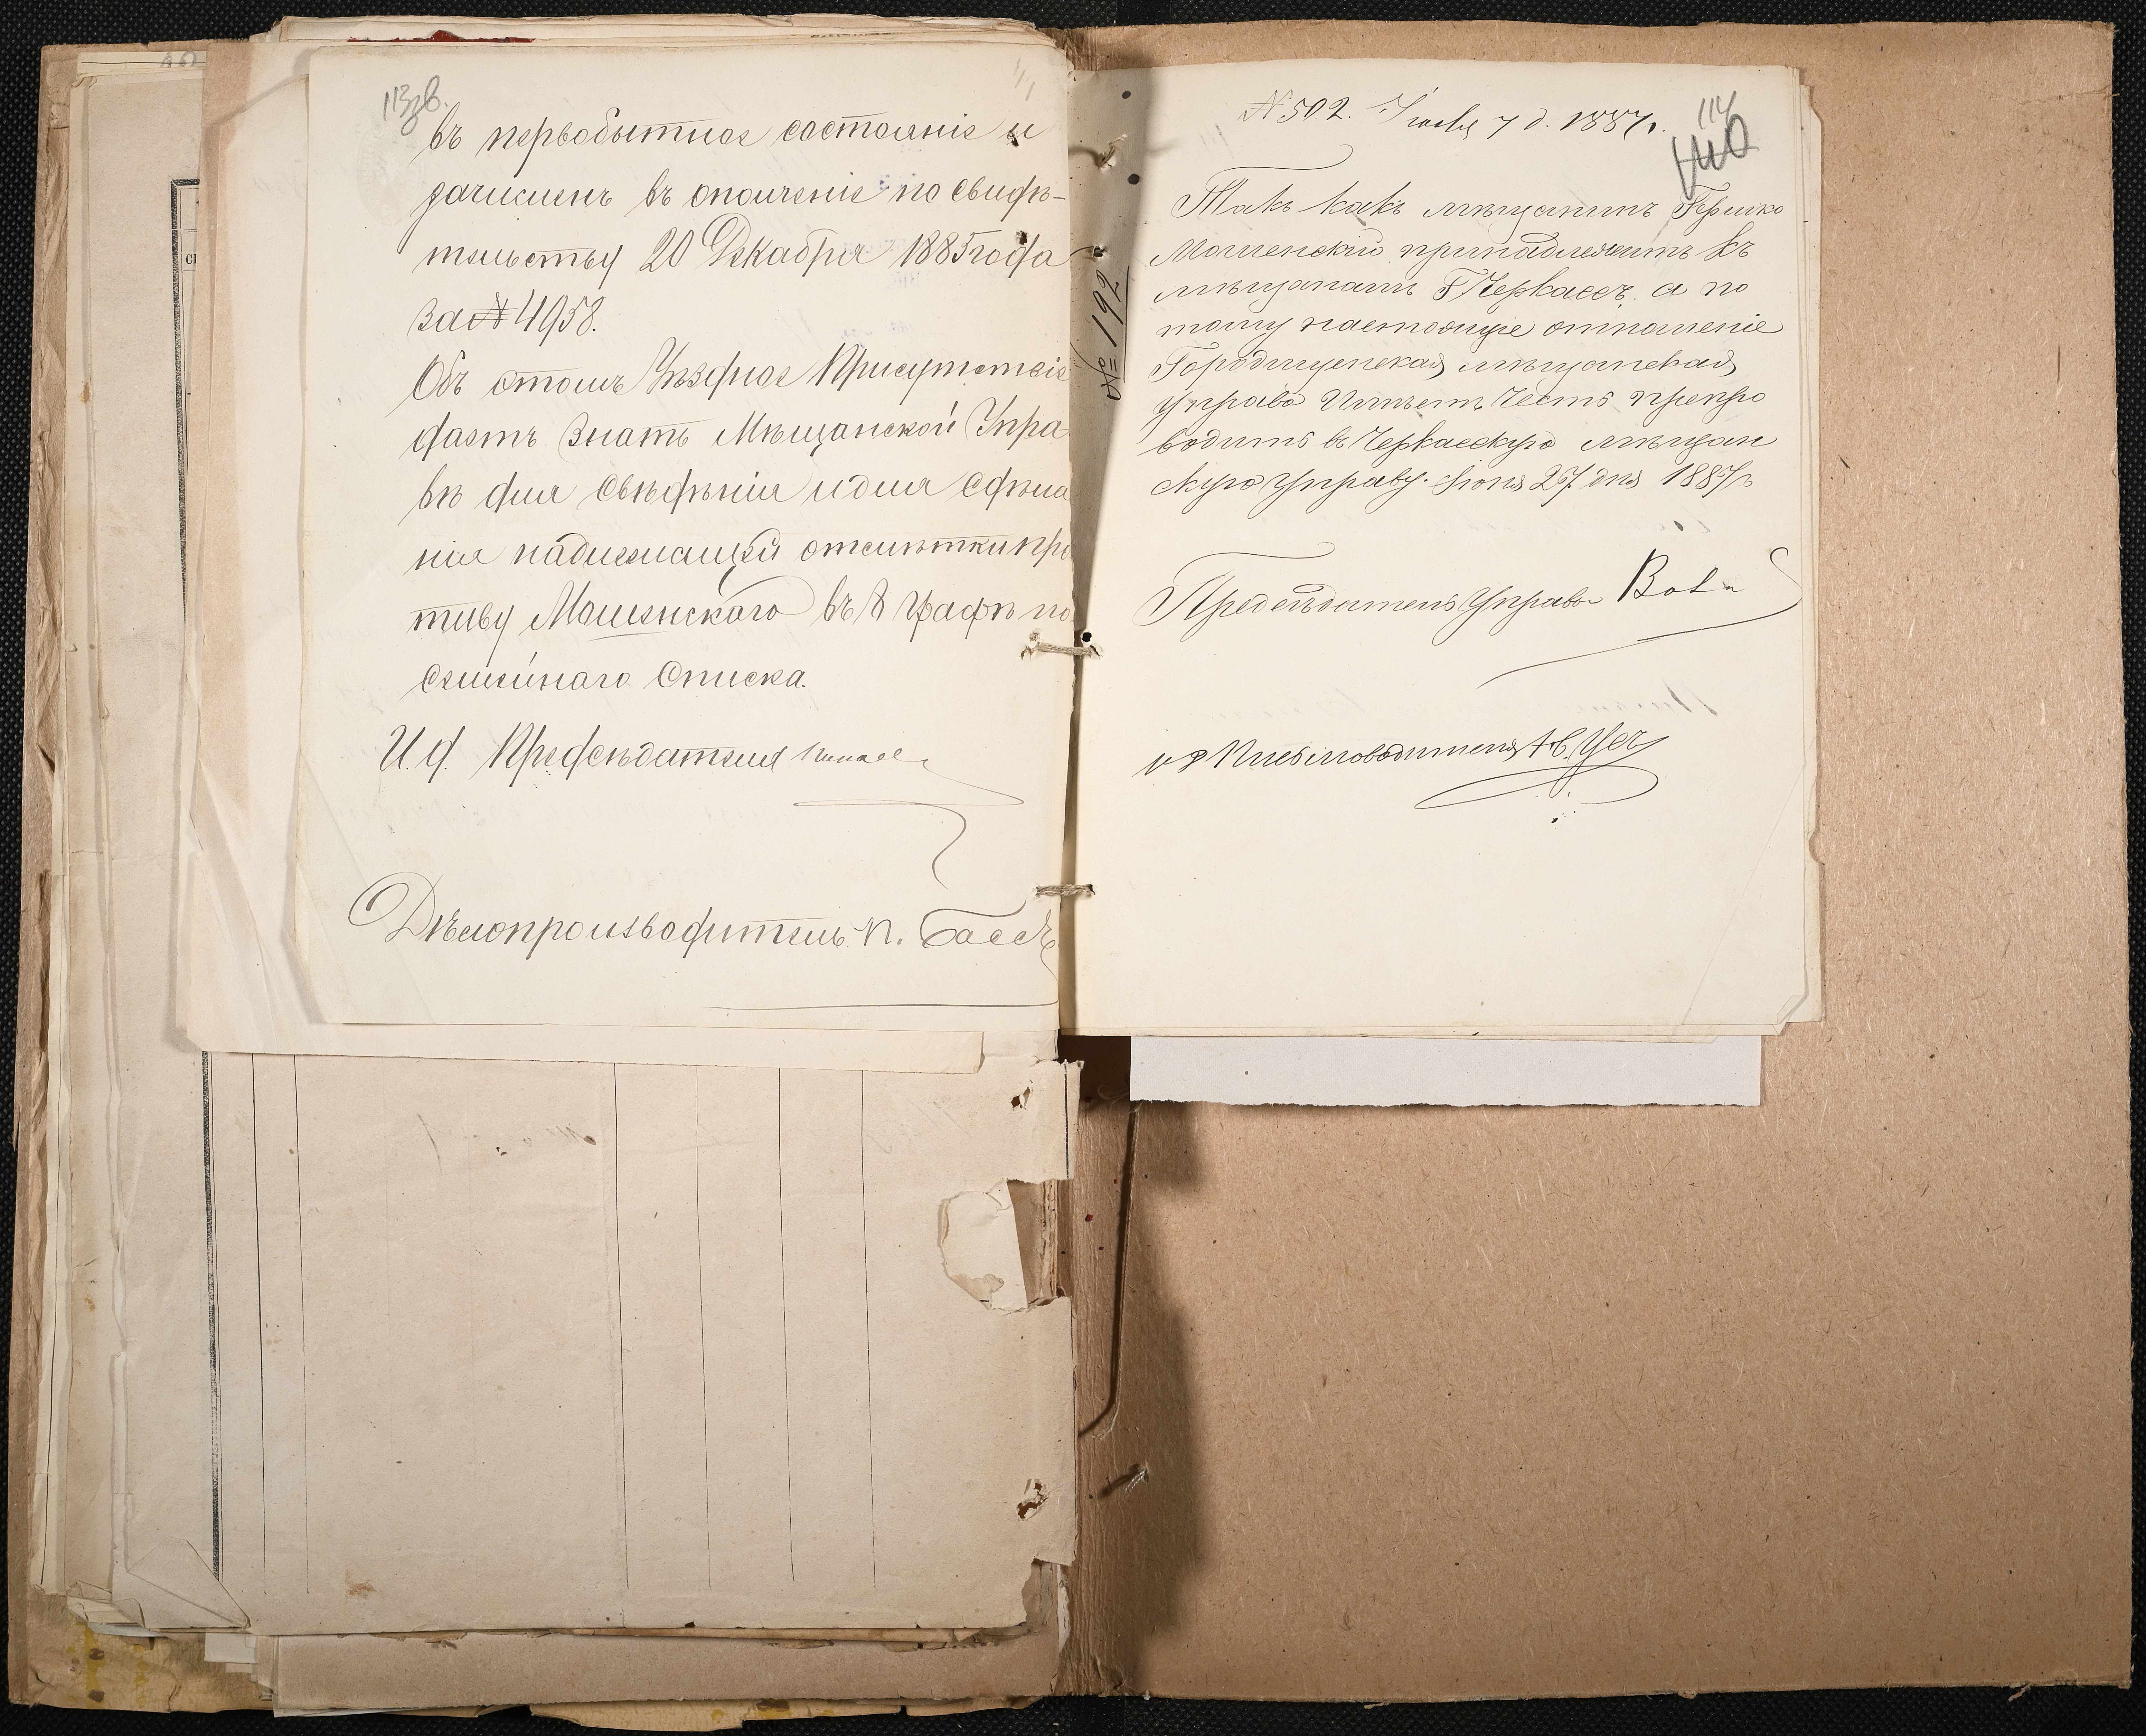 113 зв.
въ первобытное состояніе и
зачисленъ въ ополченіе по свидѣ-
тельству 20 Декабря 1885 года
за № 4958.
Объ этомъ Уѣздное Присутствіе
даетъ знать Мѣщанской Упра
вѣ для свѣдѣнія и для сдѣла
нія надлежащей отмѣтки про
тиву Мошенскаго въ 8 графѣ по
семейнаго списка.
И. д. Предсѣдателя
Дѣлопроизводитель П. Бассъ
№ 192
№ 502. Іюля 7 д. 1887 г.
114
Такъ какъ мѣщанинъ Гершко
Мошенскій принадлежитъ къ
мѣщанамъ г Черкассъ. а по
тому настоящее отношеніе
Городищенская мѣщанская
управа Имѣетъ Честь препро
водить въ Черкасскую мѣщан
скую управу. Іюня 27 дня 1887 г
Предсѣдатель Управы
и д Письмоводителя